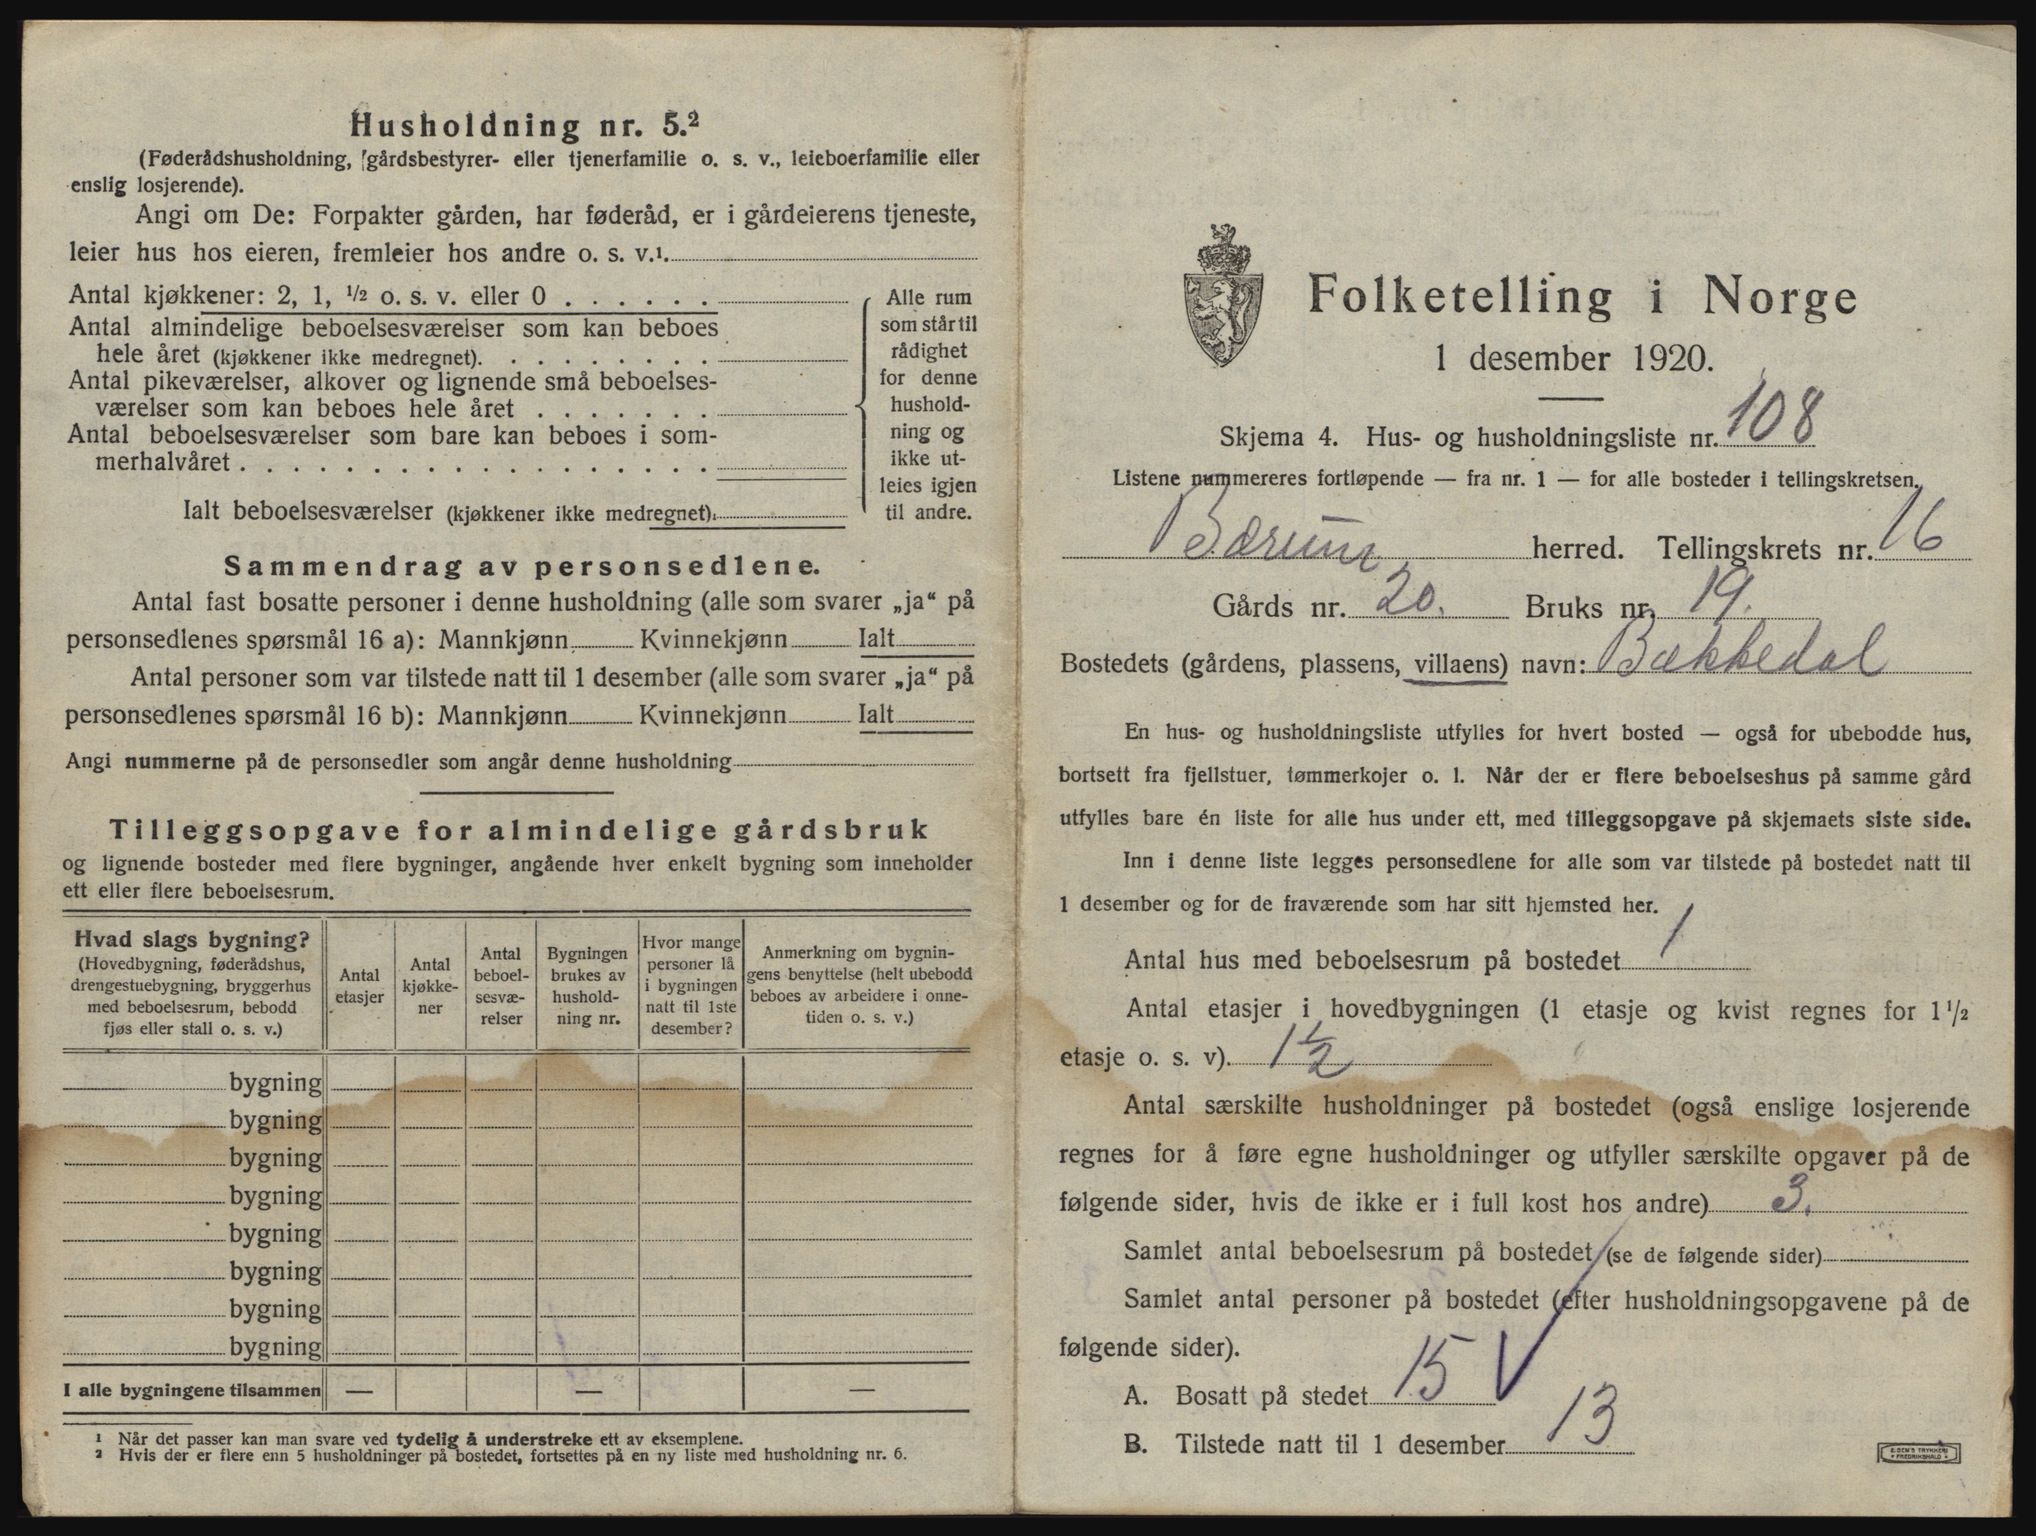 Husholdning nr. 5.²
(Føderådshusholdning, gårdsbestyrer- eller tjenerfamilie o. s. v., leieboerfamilie eller
enslig losjerende).
Angi om De: Forpakter gården, har føderåd, er i gårdeierens tjeneste,
leier hus hos eieren, fremleier hos andre o. s. v.¹.
Antal kjøkkener: 2, 1, ½ o. s. v. eller 0 . . . . . .
Antal almindelige beboelsesværelser som kan beboes
hele året (kjøkkener ikke medregnet). . . . . . . . .
Antal pikeværelser, alkover og lignende små beboelses-
værelser som kan beboes hele året . . . . . . .
Antal beboelsesværelser som bare kan beboes i som-
merhalvåret . . . . . . . . . . . . . . . . . .
Ialt beboelsesværelser (kjøkkener ikke medregnet).
Alle rum
som står til
rådighet
for denne
hushold-
ning og
ikke ut-
leies igjen
til andre.
Sammendrag av personsedlene.
Antal fast bosatte personer i denne husholdning (alle som svarer „ja“ på
personsedlenes spørsmål 16 a): Mannkjønn Kvinnekjønn Ialt
Antal personer som var tilstede natt til 1 desember (alle som svarer „ja“ på
personsedlenes spørsmål 16 b): Mannkjønn Kvinnekjønn Ialt
Angi nummerne på de personsedler som angår denne husholdning
Tilleggsopgave for almindelige gårdsbruk
og lignende bosteder med flere bygninger, angående hver enkelt bygning som inneholder
ett eller flere beboelsesrum.
Hvad slags bygning?
(Hovedbygning, føderådshus,
drengestuebygning, bryggerhus
med beboelsesrum, bebodd
fjøs eller stall o. s. v.)
Antal
etasjer
Antal
kjøkke-
ner
Antal
beboel-
sesvæ-
relser
Bygningen
brukes av
hushold-
ning nr.
Hvor mange
personer lå
i bygningen
natt til 1ste
desember?
Anmerkning om bygnin-
gens benyttelse (helt ubebodd
beboes av arbeidere i onne-
tiden o. s. v.)
bygning
bygning
bygning
bygning
bygning
bygning
bygning
bygning
I alle bygningene tilsammen — — —
¹ Når det passer kan man svare ved tydelig å understreke ett av eksemplene.
² Hvis der er flere enn 5 husholdninger på bostedet, fortsettes på en ny liste med husholdning nr. 6.
Folketelling i Norge
1 desember 1920.
Skjema 4. Hus- og husholdningsliste nr. 108
Listene nummereres fortløpende — fra nr. 1 — for alle bosteder i tellingskretsen.
Bærum herred. Tellingskrets nr. 16
Gårds nr. 20. Bruks nr. 19.
Bostedets (gårdens, plassens, villaens) navn: Bækkedal
En hus- og husholdningsliste utfylles for hvert bosted — også for ubebodde hus,
bortsett fra fjellstuer, tømmerkojer o. l. Når der er flere beboelseshus på samme gård
utfylles bare én liste for alle hus under ett, med tilleggsopgave på skjemaets siste side.
Inn i denne liste legges personsedlene for alle som var tilstede på bostedet natt til
1 desember og for de fraværende som har sitt hjemsted her.
Antal hus med beboelsesrum på bostedet 1
Antal etasjer i hovedbygningen (1 etasje og kvist regnes for 1 ½
etasje o. s. v). 1½
Antal særskilte husholdninger på bostedet (også enslige losjerende
regnes for å føre egne husholdninger og utfyller særskilte opgaver på de
følgende sider, hvis de ikke er i full kost hos andre) 3.
Samlet antal beboelsesrum på bostedet (se de følgende sider)
Samlet antal personer på bostedet (efter husholdningsopgavene på de
følgende sider).
A. Bosatt på stedet 15 V
B. Tilstede natt til 1 desember 13
E. SEM'S TRYKKERI
FREDRIKSHALD